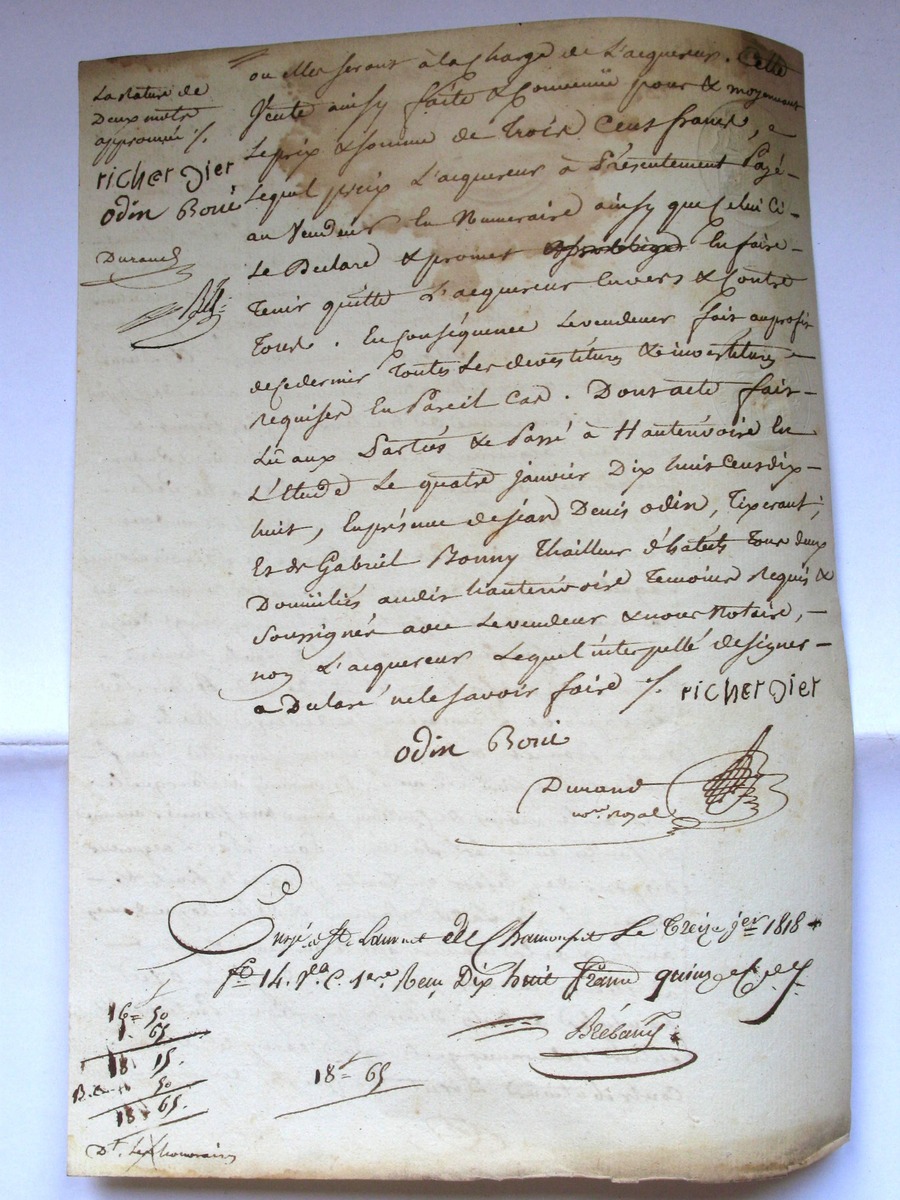 La rature de
Deux mots
approuvée /.
richer gier
odin Boné
Durand
ou elles seront à la Charge de L'acquereur. Cette
Vente ainsy faite & Convenüe pour & moyennant
Le prix & somme de trois Cents francs,
Lequel prix L'acquereur à Présentement Payé
au Vendeur En Numeraire ainsy que Celui Ci
Le Declare & promet En faire
Tenir quitte L'acquereur Envers & Contre
Tous. En Conséquence Le vendeur fait au profit
de ce dernier Toutes Les devestitures & investitures
requises En Pareil Cas. Dont acte fait
Lû aux Parties & Passé à Hauterivoire En
L'Etude Le quatre janvier Dix huit Cens dix
huit, En présence de jean Denis odin, Tixerant,
Et de Gabriel Bonny Thailleur d'habits Tous deux
Domiciliés audit hauterivoire Temoins Requis &
Soussignés avec Le vendeur & nous Notaire,
non L'acquereur Lequel interpellé de signer
a Declaré ne le savoir faire /.
richer gier
odin Boné
Durand
nore. Royal
Enrgé à St. Laurent de Chamousset Le Treize jer 1818
fo 14. Ro. C. 1ere Reçu Dix huit francs quinze
16 = 50
1. 65
18 15.
50
18 65.
18f 65
Dt. Les honoraires